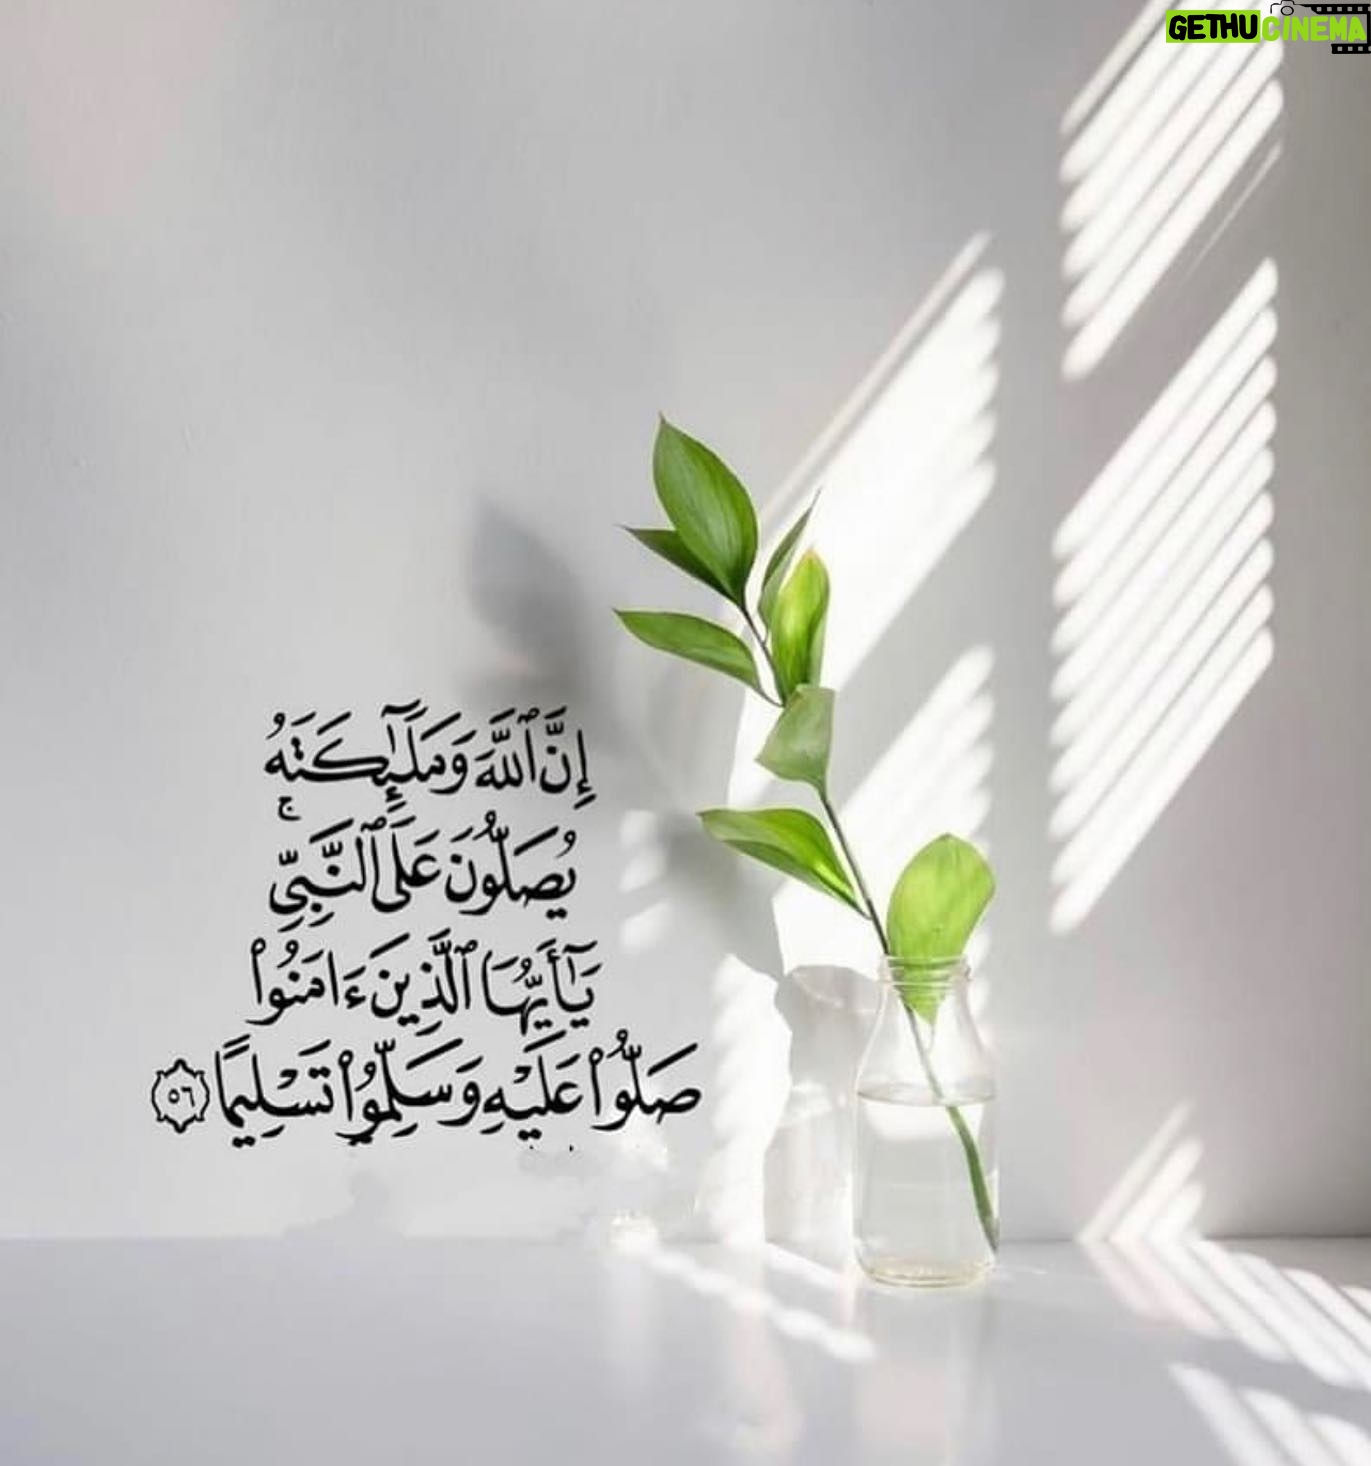 GETHUCINEMA
إِنَّ ٱللَّهَ وَمَلَٰٓئِكَتَهُۥ
يُصَلُّونَ عَلَى ٱلنَّبِيِّۚ
يَٰٓأَيُّهَا ٱلَّذِينَ ءَامَنُوا۟
صَلُّوا۟ عَلَيْهِ وَسَلِّمُوا۟ تَسْلِيمًا ٥٦